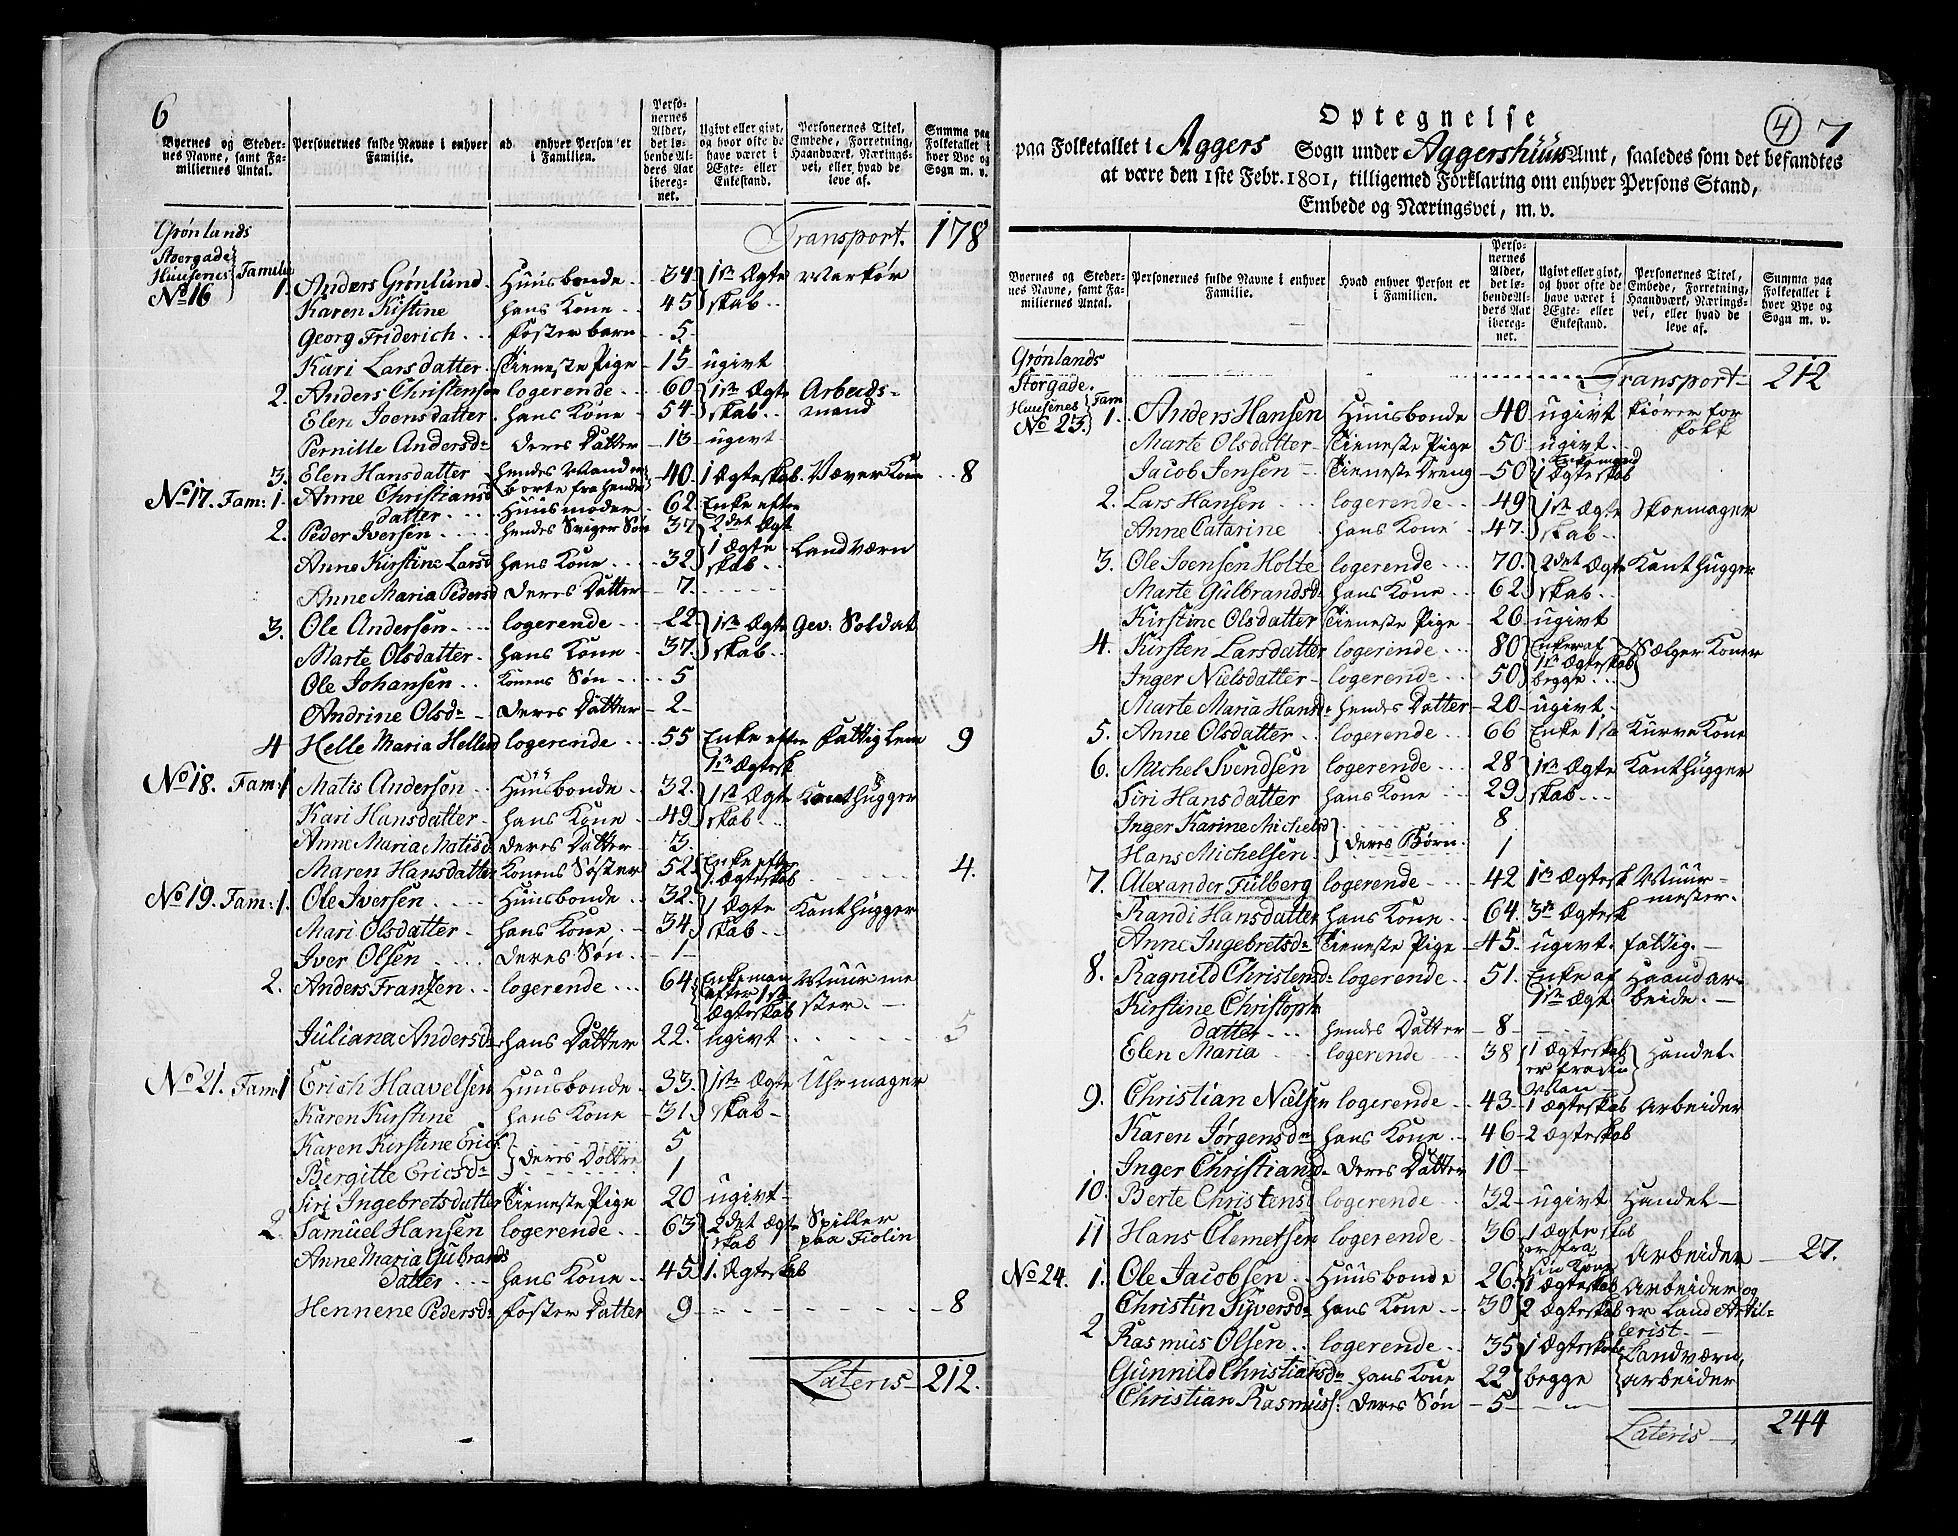 6
Byernes og Steder-
nes Navne, samt Fa-
miliernes Antal.
Personernes fulde Navne i enhver
Familie.
ad enhver Person er
i Familien.
Perso-
nernes
Alder,
det lø-
bende Al-
ders Aar
ibereg-
net.
Ugivt eller givt,
og hvor ofte de
have været i
Ægte- eller
Enkestand.
Personernes Titel,
Embede, Forretning,
Haandværk, Nærings-
vei, eller hvad de
leve af.
Summa paa
Folketallet i
hver Bye og
Sogn m. v.
Grønlands
Storgade
Huusenes Familie
Transport. 178
No 16 1. Anders Grønlund. Huusbonde. 34 1ste Ægte Markør
Karen Kistine hans Kone 45 skab
Georg Friderich Foster barn 5
Kari Larsdatter Tieneste Pige 15 ugivt
2. Anders Christensen logerende 60 1ste Ægte Arbeids-
Elen Joensdatter hans Kone 54 skab mand
Pernille Andersdr Deres Datter 13 ugivt
3. Elen Hansdatter hendes Mand er 40 1 Ægteskab Væver Kone 8
borte fra hende
No 17. Fam: 1. Anne Christians Huusmoder 62 Enke efter
datter 2det Ægt
2. Peder Iversen hendes Sviger Søn 37 1 Ægte Landværn
Anne Kirstine Larsd hans Kone 32 skab
Anne Maria Pedersd Deres Datter 7
3. Ole Andersen logerende 22 1ste Ægte Gev: Soldat
Marte Olsdatter hans Kone 37 skab
Ole Johansen Konens Søn 5
Andrine Olsdr Deres Datter 2
4 Helle Maria Hellesd logerende 55 Enke efter Fattig Lem 9
1ste Ægtesk
No 18. Fam: 1 Matis Anderson Huusbonde 32 1st Ægte Kanthugger
Kari Hansdatter hans Kone 49 skab
Anne Maria Matisd Deres Datter 3
Maren Hansdatter Konens Søster 52 Enke efter 4.
1. Ægteskab
No 19. Fam: 1. Ole Iversen Huusbonde 32 1 Ægte Kanthugger
Mari Olsdatter hans Kone 34 skab
Iver Olsen Deres Søn 1
2. Anders Franzen logerende 64 Enkeman Muurme
efter 1ste ster.
Ægteskab
Juliana Andersdr hans Datter 22 ugivt 5
No 21. Fam: 1 Erich Haavelsen Huusbonde 33 1ste Ægte Uhrmager
Karen Kirstine hans Kone 31 skab
Karen Kirstine Erics 5
Bergitte Ericsdr Deres Døttre 1
Siri Ingebretsdatter Tieneste Pige 20 ugivt
2. Samuel Hansen logerende 63 2det Ægte Spiller
skab paa Fiolin
Anne Maria Gulbrands
Datter hans Kone 45 1. Ægteskab
Hennene Pedersdr Foster Datter 9 8
Lateris 212.
4
7
Optegnelse
paa Folketallet i Aggers Sogn under Aggershuus Amt, saaledes som det befandtes
at være den 1ste Febr. 1801, tilligemed Forklaring om enhver Persons Stand,
Embede og Næringsvei, m. v.
Byernes og Steder-
nes Navne, samt Fa-
miliernes Antal.
Personernes fulde Navne i enhver
Familie.
Hvad enhver Person er
i Familien.
Perso-
nernes
Alder,
det lø-
bende Al-
ders Aar
ibereg-
net.
Ugivt eller givt,
og hvor ofte de
have været i
Ægte- eller
Enkestand.
Personernes Titel,
Embede, Forretning,
Haandværk, Nærings-
vei, eller hvad de
leve af.
Summa paa
Folketallet i
hver Bye og
Sogn m. v.
Grønlands
Storgade.
Transport 212
Huusenes Fam
No 23. 1. Anders Hansen Huusbonde 40 ugivt kiører for
folk
Marte Olsdatter Tieneste Pige 50 ugivt
Jacob Jensen Tieneste Dreng 50 Enkemand
1 Ægteskab
2. Lars Hansen logerende 49 1ste Ægte Skoemager
Anne Catarine hans Kone 47 skab
3. Ole Joensen Holte logerende 70 2det Ægte Kanthugger
Marte Gulbrandsd hans Kone 62 skab
Kirstine Olsdatter Tieneste Pige 26 ugivt
4. Kirsten Larsdatter logerende 80 Enke af Sælger Koner
1ste Ægteskab
Inger Nielsdatter logerende 50 begge
Marte Maria Hansdr hendes Datter 20 ugivt
5. Anne Olsdatter logerende 66 Enke 1ste Kurve Kone
6. Michel Svendsen logerende 28 1ste Ægte Kanthugger
Siri Hansdatter hans Kone 29 skab
Inger Karine Michelsd 8
Hans Michelsen Deres Børn 1
7. Alexander Fulberg logerende 42 1ste Ægtesk Muur-
mester.
Randi Hansdatter hans Kone 64 3die Ægtesk
Anne Ingebretsdr Tieneste Pige 45 ugivt. fattig.
8. Ragnild Christensdr logerende 51 Enke af Haandar-
1ste Ægt beide.
Kirstine Christoph
datter hendes Datter 8
Elen Maria logerende 38 1 Ægteskab Handel
er fra din
Man
9. Christian Nielsen logerende 43 1 Ægteskab Arbeider
Karen Jørgensdr hans Kone 46 2 Ægteskab
Inger Christiand Deres Datter 10
10. Berte Christensd logerende 32 ugivt Handel
11 Hans Clemetsen logerende 36 1 Ægteskab
er fra Arbeider 27.
sin Kone
No 24. 1. Ole Jacobsen Huusbonde 26 1 Ægteskab Arbeider og
Christin Syversdr hans Kone 30 2 Ægteskab er Land Artil-
lerist
2 Rasmus Olsen logerende 35 1 Ægteskab Landværn,
Gunnild Christiansdr hans Kone 22 begge arbeider
Christian Rasmus: Deres Søn 5
Lateris 244